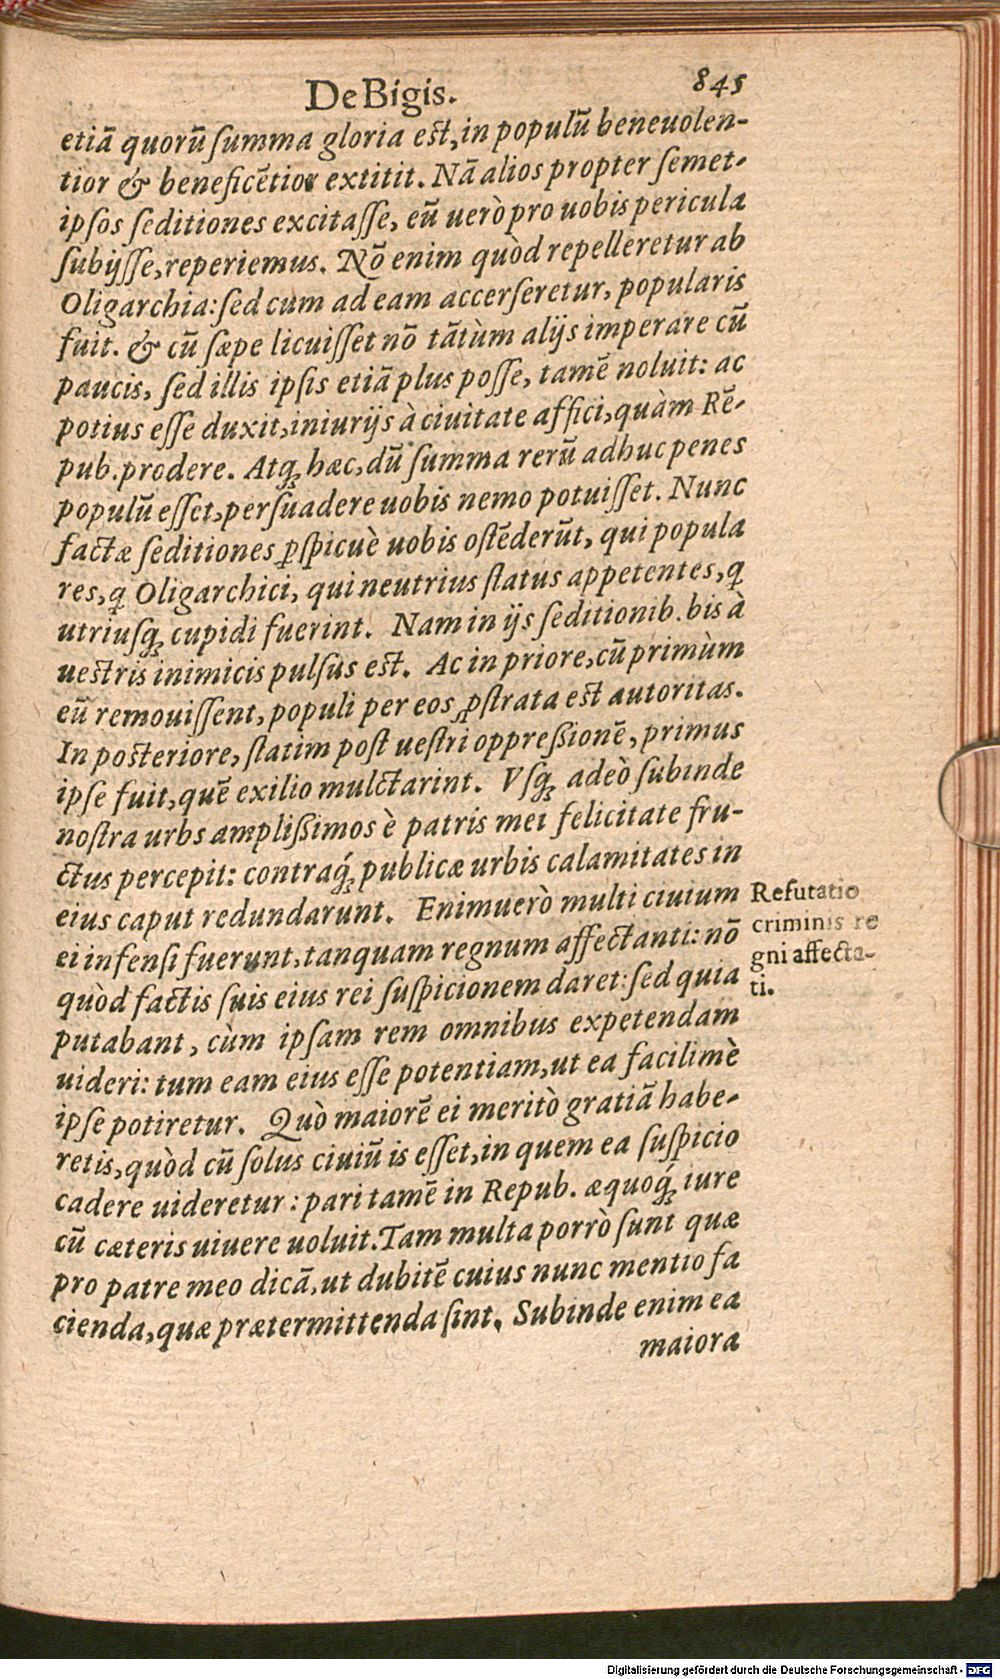 De Bigis. 845
etiã quorũ ſumma gloria eſt, in populũ beneuolen-
tior & beneficẽtior extitit. Nã alios propter ſemet-
ipſos ſeditiones excitaſſe, eũ uerò pro uobis pericula
ſubijſſe, reperiemus. Nõ enim quòd repelleretur ab
Oligarchia: ſed cum ad eam accerſeretur, popularis
fuit. & cũ ſæpe licuiſſet nõ tãtùm alijs imperare cũ
paucis, ſed illis ipſis etiã plus poſſe, tamẽ noluit: ac
potius eſſe duxit, iniurijs à ciuitate affici, quàm Rẽ-
pub. prodere. Atq; hæc, dũ ſumma rerũ adhuc penes
populũ eſſet, perſuadere uobis nemo potuiſſet. Nunc
factæ ſeditiones ꝑſpicuè uobis oſtẽderũt, qui popula
res, ꝗ Oligarchici, qui neutrius ſtatus appetentes, ꝗ
utriuſq; cupidi fuerint. Nam in ijs ſeditionib. bis à
ueſtris inimicis pulſus eſt. Ac in priore, cũ primùm
eũ remouiſſent, populi per eos ꝓſtrata eſt autoritas.
In poſteriore, ſtatim poſt ueſtri oppreſsionẽ, primus
ipſe fuit, quẽ exilio mulctarint. Vſq; adeò ſubinde
noſtra urbs ampliſsimos è patris mei felicitate fru-
ctus percepit: contraq́; publicæ urbis calamitates in
eius caput redundarunt. Enimuerò multi ciuium
ei infenſi fuerunt, tanquam regnum affectanti: nõ
quòd factis ſuis eius rei ſuſpicionem daret: ſed quia
putabant, cùm ipſam rem omnibus expetendam
uideri: tum eam eius eſſe potentiam, ut ea facilimè
ipſe potiretur. Quò maiorẽ ei meritò gratiã habe-
retis, quòd cũ ſolus ciuiũ is eſſet, in quem ea ſuſpicio
cadere uideretur: pari tamẽ in Repub. æquoq́; iure
cũ cæteris uiuere uoluit. Tam multa porrò ſunt quæ
pro patre meo dicã, ut dubitẽ cuius nunc mentio fa
cienda, quæ prætermittenda ſint. Subinde enim ea
maiora
Refutatio
criminis re
gni affecta-
ti.
Digitalisierung gefördert durch die Deutsche Forschungsgemeinschaft - DFG